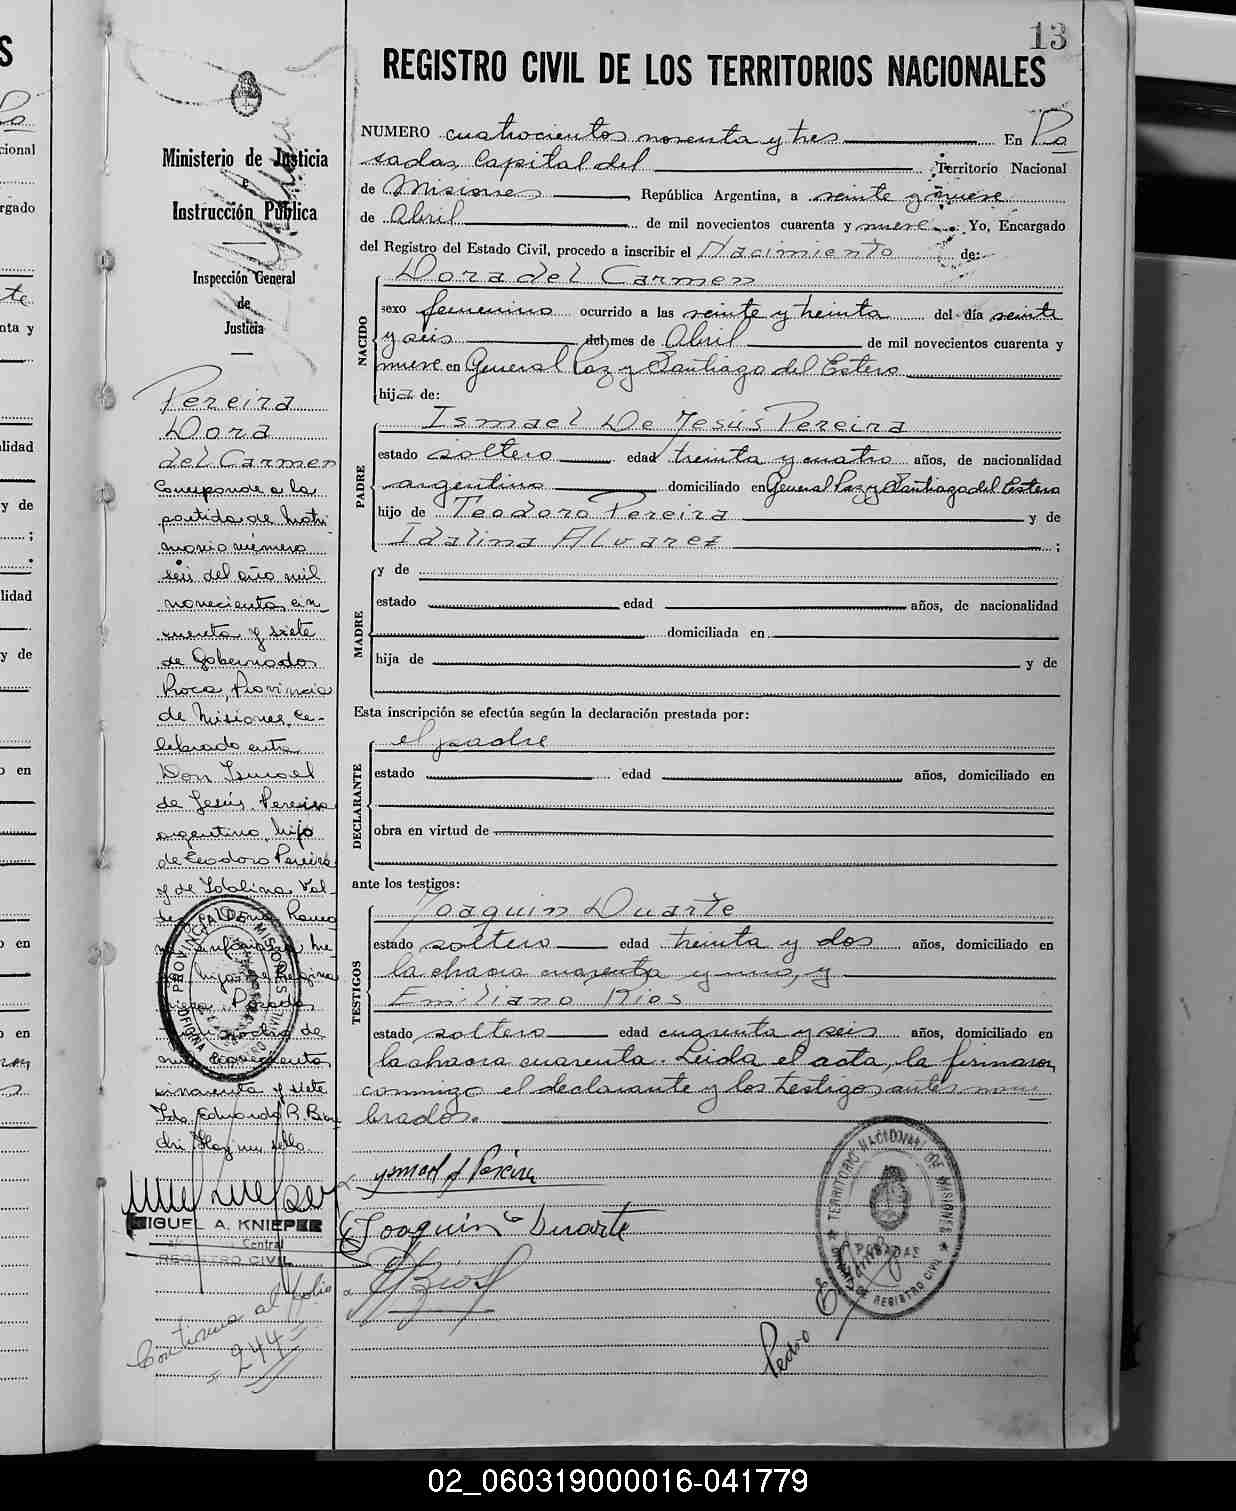 13
REGISTRO CIVIL DE LOS TERRITORIOS NACIONALES
Ministerio de Justicia
e
Instrucción Pública
Inspección General
de
Justicia
Pereira
Dora
del Carmen
Corresponde a la
partida de matri
monio número
seis del año mil
novecientos cin
cuenta y siete
de Gobernador
Roca, Provincia
de Misiones, ce-
lebrado entre
Don Ismael
de Jesús Pereira
argentino, hijo
de Teodoro Pereira
y de Idalina Val-
Posadas
de
mil novecientos
cincuenta y siete
Fdo Eduardo R.
Hay un sello
MIGUEL A. KNIEPER
Central
REGISTRO CIVIL
Continua al folio
244
NUMERO cuatrocientos noventa y tres En Po
sadas, Capital del Territorio Nacional
de Misiones República Argentina, a veinte y nueve
de Abril de mil novecientos cuarenta y nueve. Yo, Encargado
del Registro del Estado Civil, procedo a inscribir el Nacimiento de:
NACIDO
Dora del Carmen
sexo femenino ocurrido a las veinte y treinta del día veinte
y seis del mes de Abril de mil novecientos cuarenta y
nueve en General Paz y Santiago del Estero
hija de:
PADRE
Ismael De Jesús Pereira
estado soltero edad treinta y cuatro años, de nacionalidad
argentino domiciliado en General Paz y Santiago del Estero
hijo de Teodoro Pereira y de
Idalina Alvarez ;
MADRE
y de
estado edad años, de nacionalidad
domiciliada en
hija de y de
Esta inscripción se efectúa según la declaración prestada por:
DECLARANTE
el padre
estado edad años, domiciliado en
obra en virtud de
ante los testigos:
TESTIGOS
Joaquin Duarte
estado soltero edad treinta y dos años, domiciliado en
la chacra cuarenta y uno, y
Emiliano Rios
estado soltero edad cuarenta y seis años, domiciliado en
la chacra cuarenta. Leida el acta, la firmaron
conmigo el declarante y los testigos antes nom
brados.
Ysmael J Pereira
Joaquin Duarte
E Rios
TERRITORIO NACIONAL DE MISIONES
POSADAS
OFICINA DE REGISTRO CIVIL
PROVINCIA DE MISIONES
OFICINA REGISTRO CIVIL
Pedro E
02_060319000016-041779